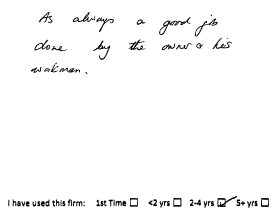 As always a good job
done by the owner & his
workman.
I have used this firm: 1st Time ☐ <2 yrs ☐ 2-4 yrs ☑ 5+ yrs ☐